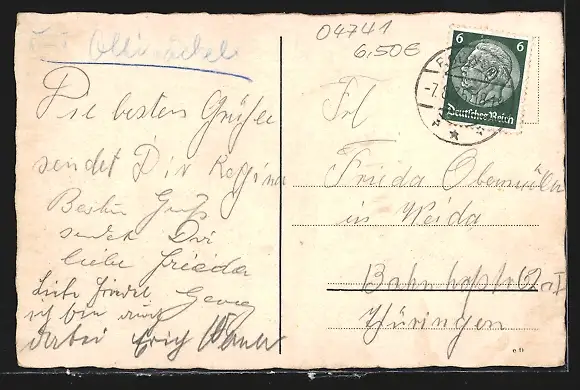 04741
6,50€
6 6
Deutsches Reich
Die besten Grüße
sendet Dir Regina
Besten Gruß
sendet Dir
liebe Frieda
Georg
Liebe Friedel
ich bin auch
dabei Erich
Frl
Frieda Obermüller
in Weida
Bahnhofstr
Thüringen